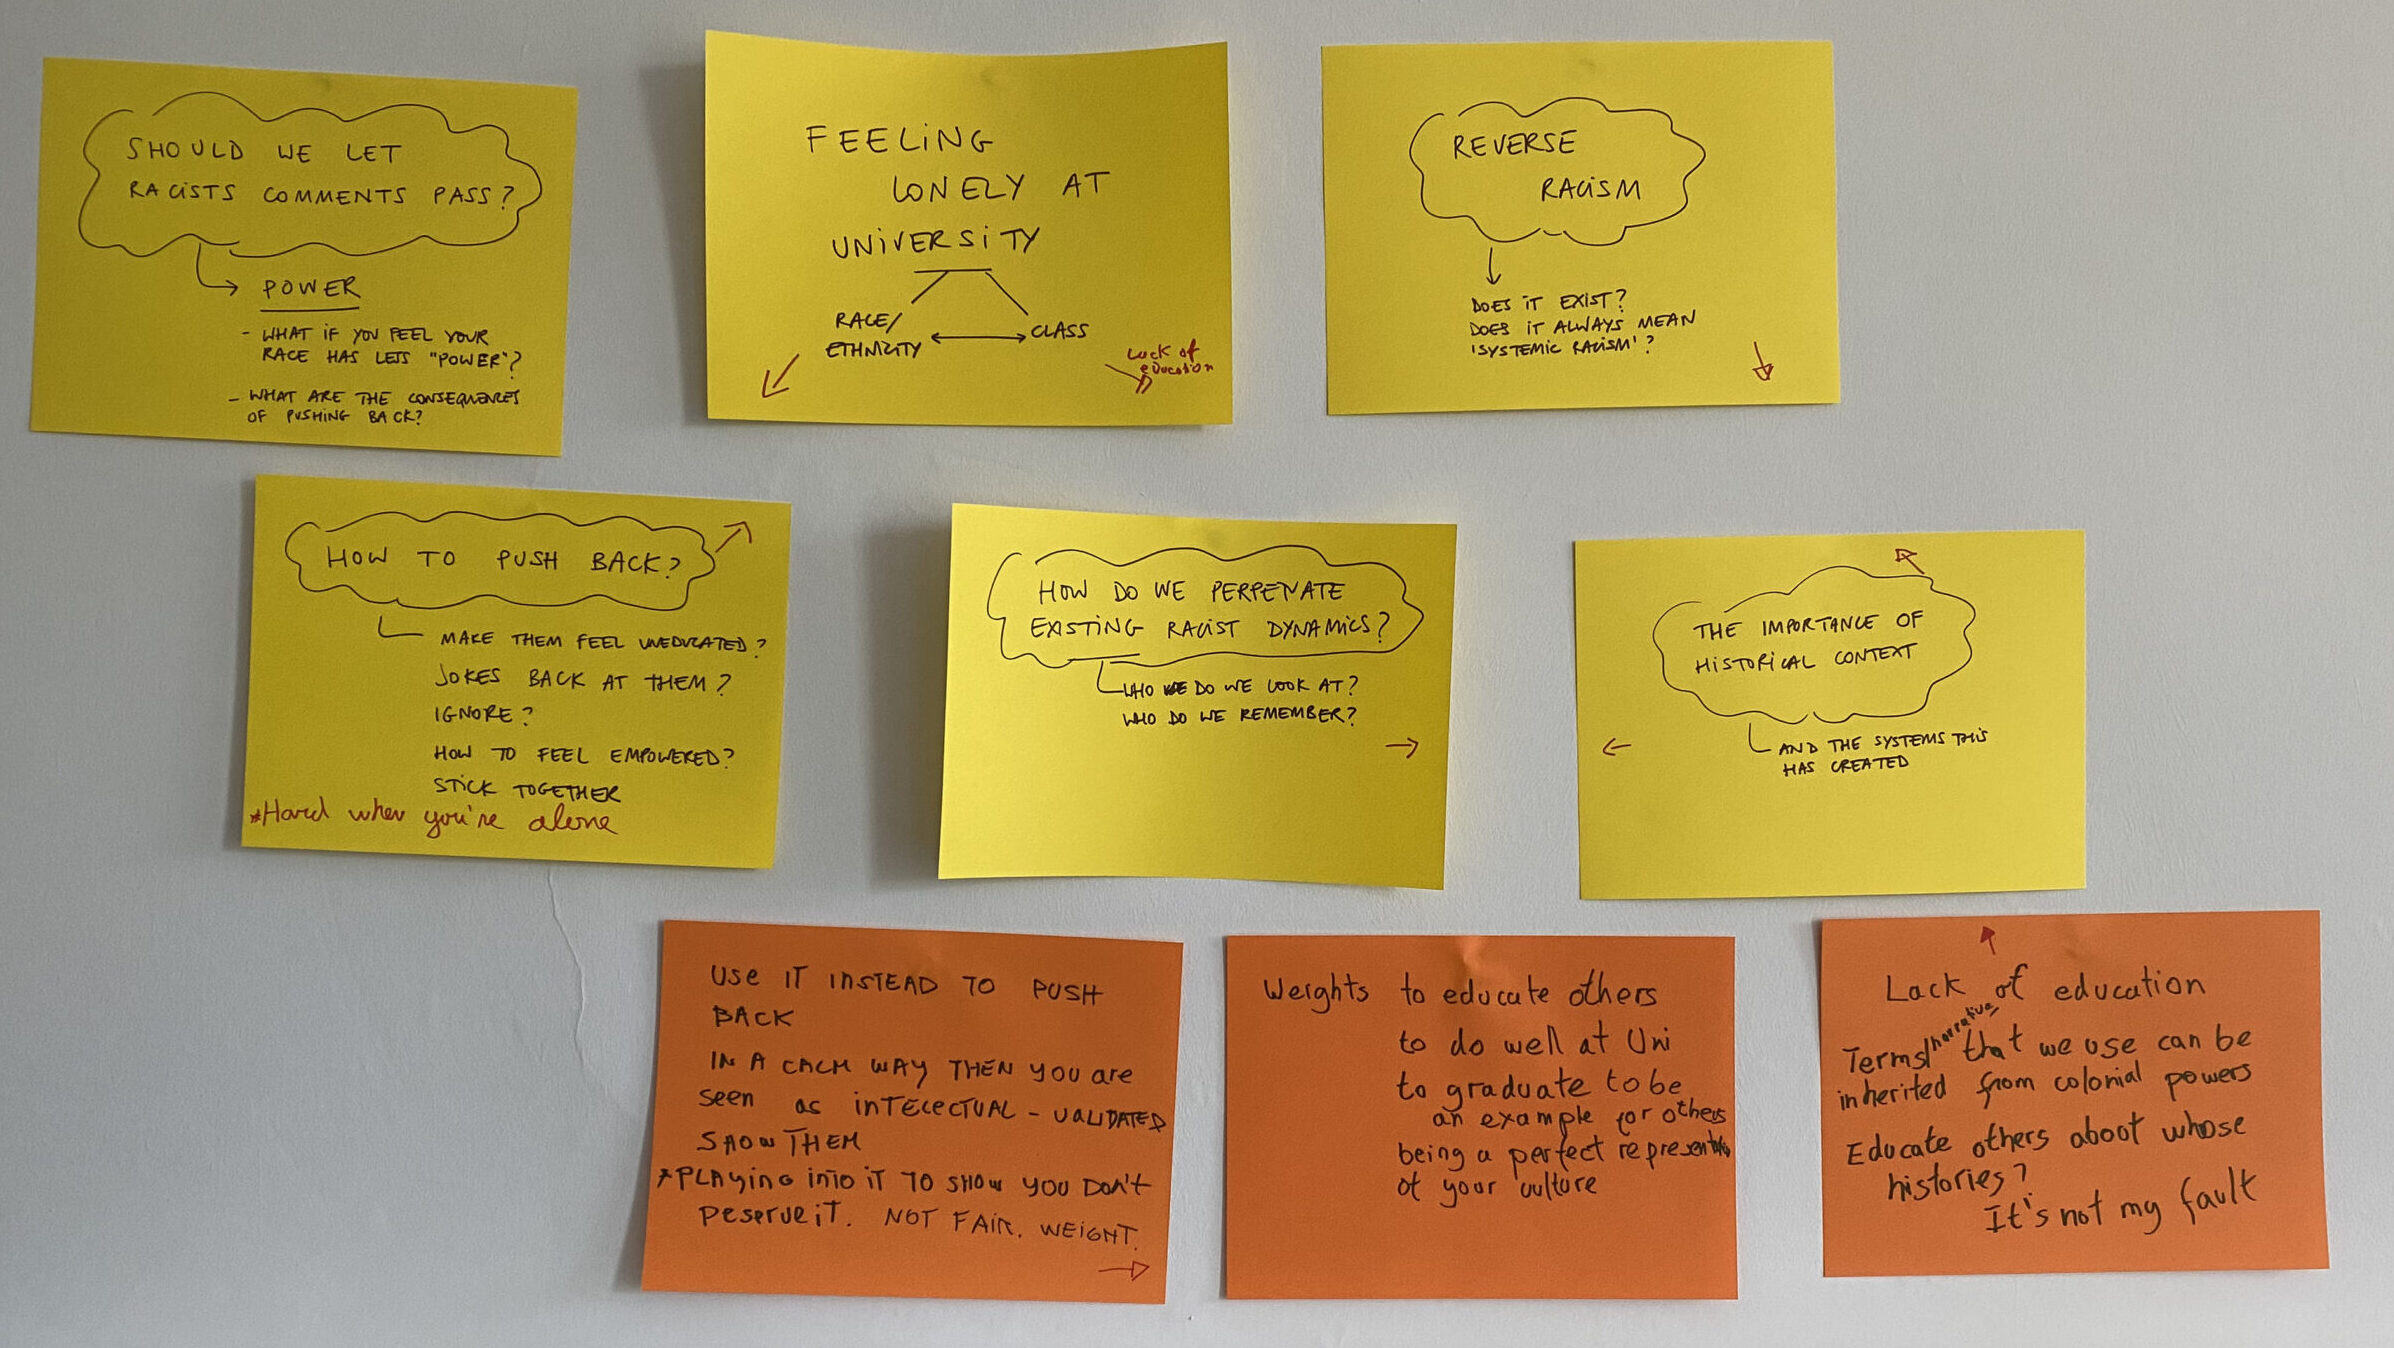 SHOULD WE LET
RACISTS COMMENTS PASS?
POWER
- WHAT IF YOU FEEL YOUR
RACE HAS LESS "POWER"?
- WHAT ARE THE CONSEQUENCES
OF PUSHING BACK?
FEELING
LONELY AT
UNIVERSITY
RACE/
ETHNICITY
CLASS
Lack of
education
REVERSE
RACISM
DOES IT EXIST?
DOES IT ALWAYS MEAN
'SYSTEMIC RACISM'?
HOW TO PUSH BACK?
MAKE THEM FEEL UNEDUCATED?
JOKES BACK AT THEM?
IGNORE?
HOW TO FEEL EMPOWERED?
STICK TOGETHER
*Hard when you're alone
HOW DO WE PERPENATE
EXISTING RACIST DYNAMICS?
WHO DO WE LOOK AT?
WHO DO WE REMEMBER?
THE IMPORTANCE OF
HISTORICAL CONTEXT
AND THE SYSTEMS THIS
HAS CREATED
USE IT INSTEAD TO PUSH
BACK
IN A CALM WAY THEN YOU are
seen as inTELECTUAL - VALIDATED
SHOW THEM
*PLAYING INTO IT TO SHOW YOU DON'T
DeserveiT. NOT FAIR. WEIGHT.
Weights to educate others
to do well at Uni
to graduate to be
an example for others
being a perfect representation
of your culture
Lack of education
Terms/narrative that we use can be
inherited from colonial powers
Educate others about whose
histories?
It's not my fault